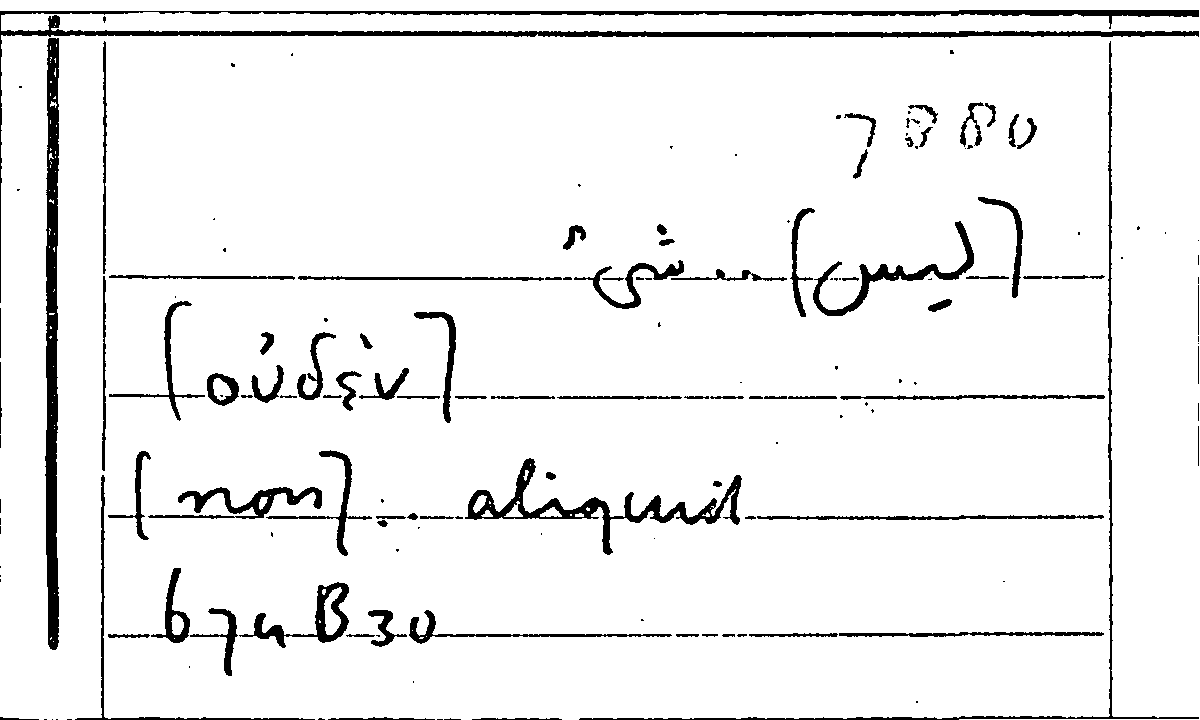 7880
[ليس] ... شيءٌ
[οὐδὲν]
[non] ... aliquid
674B30